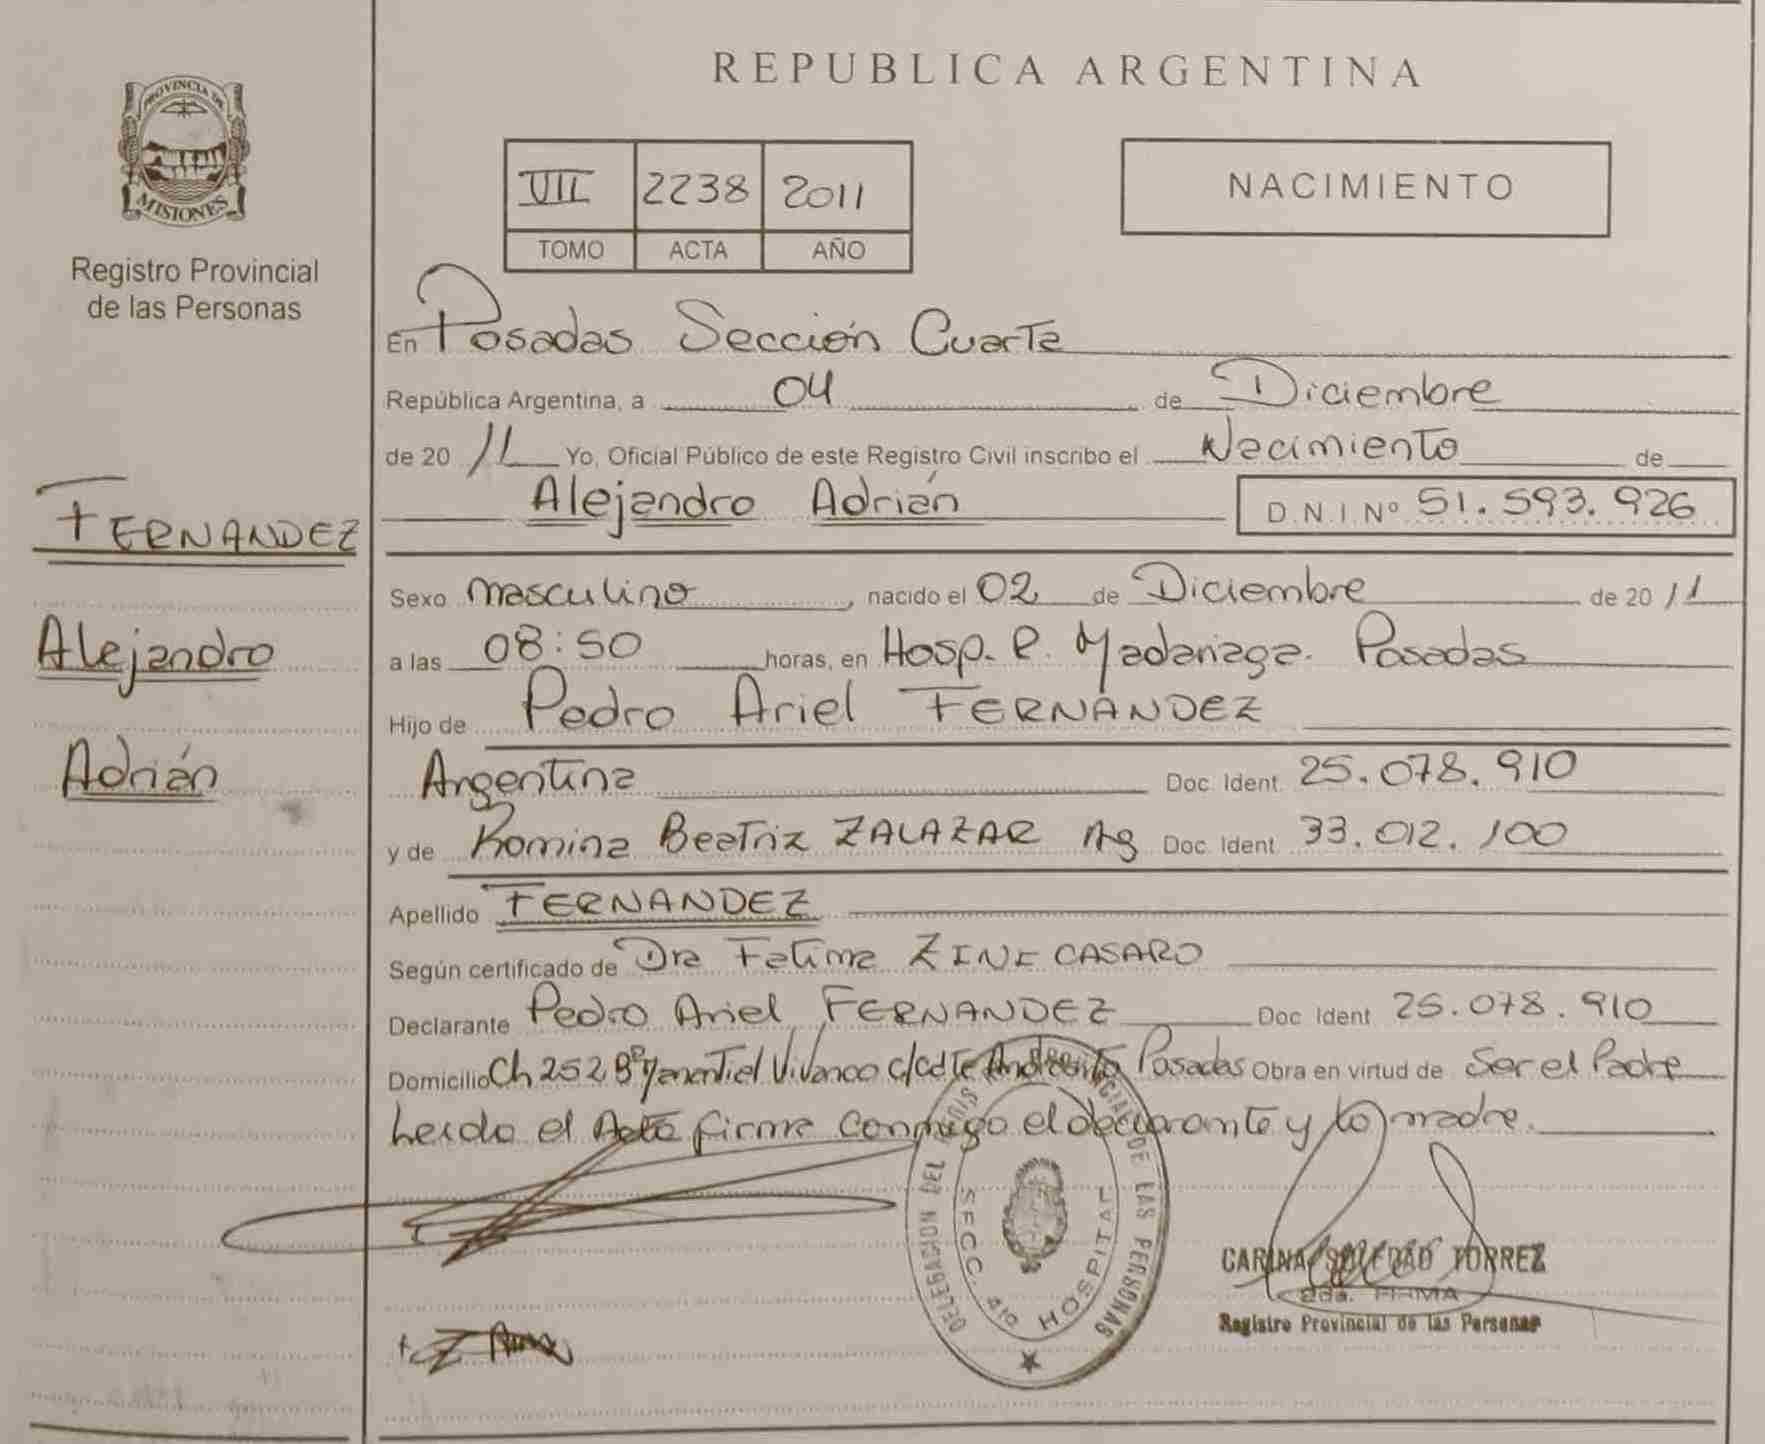 PROVINCIA DE
MISIONES
Registro Provincial
de las Personas
FERNANDEZ
Alejandro
Adrián
REPUBLICA ARGENTINA
VII 2238 2011
TOMO ACTA AÑO
NACIMIENTO
En Posadas Sección Cuarta
República Argentina, a 04 de Diciembre
de 20 11 Yo, Oficial Público de este Registro Civil inscribo el Nacimiento de
Alejandro Adrián D.N.I. Nº 51.593.926
Sexo masculino, nacido el 02 de Diciembre de 20 11
a las 08:50 horas, en Hosp. R. Madariaga. Posadas
Hijo de Pedro Ariel FERNANDEZ
Argentina Doc. Ident. 25.078.910
y de Romina Beatriz ZALAZAR Arg Doc. Ident. 33.012.100
Apellido FERNANDEZ
Según certificado de Dra Fatima ZINE CASARO
Declarante Pedro Ariel FERNANDEZ Doc. Ident. 25.078.910
Domicilio Ch 252 Bº Manantiel Vivanco c/cdte Andresito Posadas Obra en virtud de Ser el Padre
Leida el Acta firma conmigo el declarante y la madre.
DELEGACION DEL REGISTRO PROVINCIAL DE LAS PERSONAS
SECC. 4ta HOSPITAL
CARINA SOLEDAD TORREZ
2da. FIRMA
Registro Provincial de las Personas